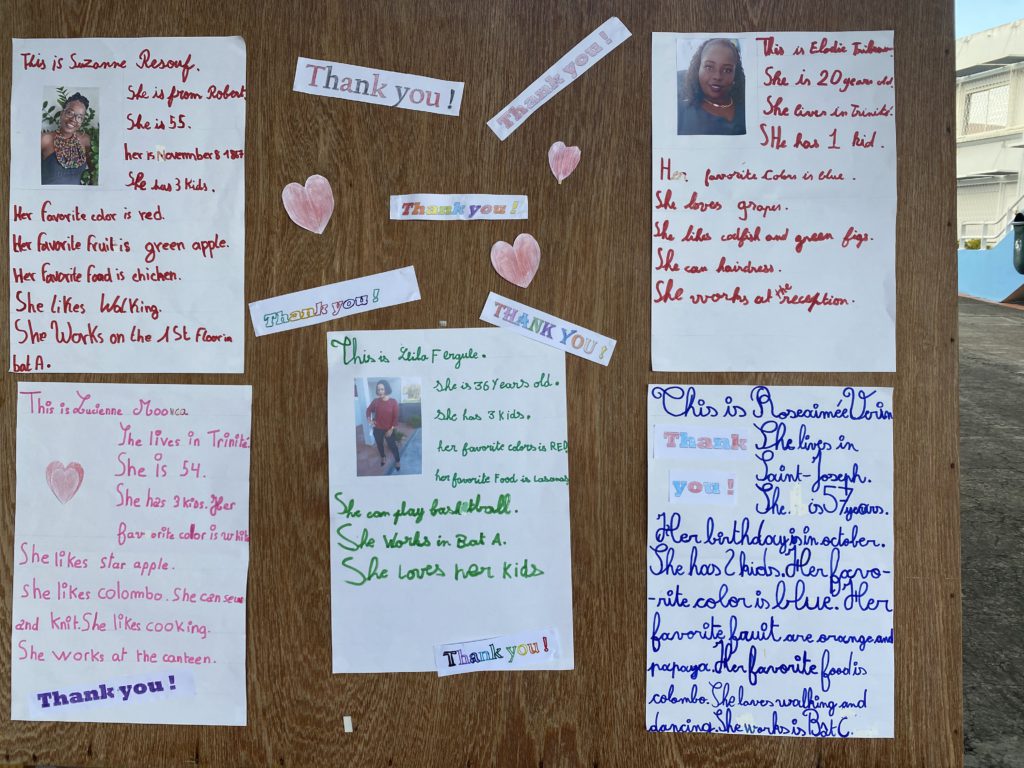 This is Suzanne Resouf.
She is from Robert.
She is 55.
her is November 8 1867
She has 3 kids.
Her favorite color is red.
Her favorite fruit is green apple.
Her favorite food is chicken.
She likes Walking.
She Works on the 1St Floor in
bat A.
Thank you !
Thank you !
Thank you !
Thank you !
THANK YOU !
This is Elodie
She is 20 years old.
She lives in Trinité.
SHe has 1 kid.
Her favorite Colors is blue.
She loves grapes.
She likes codfish and green figs.
She can hairdress.
She works at the reception.
This is Lucienne
She lives in Trinité.
She is 54.
She has 3 kids. Her
favorite color is white
She likes star apple.
She likes colombo. She can sew
and knit. She likes cooking.
She works at the canteen.
Thank you !
This is Leila Fergule.
She is 36 Years old.
She has 3 kids.
her favorite colors is RED
her favorite Food is Lasanas
She can play basketball.
She Works in Bat A.
She Loves her Kids
Thank you !
This is Roseaimée Verin
Thank
you !
She lives in
Saint-Joseph.
She is 57 years.
Her birthday is in october.
She has 2 kids. Her favo-
-rite color is blue. Her
favorite fruit are orange and
papaya. Her favorite food is
colombo. She loves walking and
dancing. She works is Bat C.